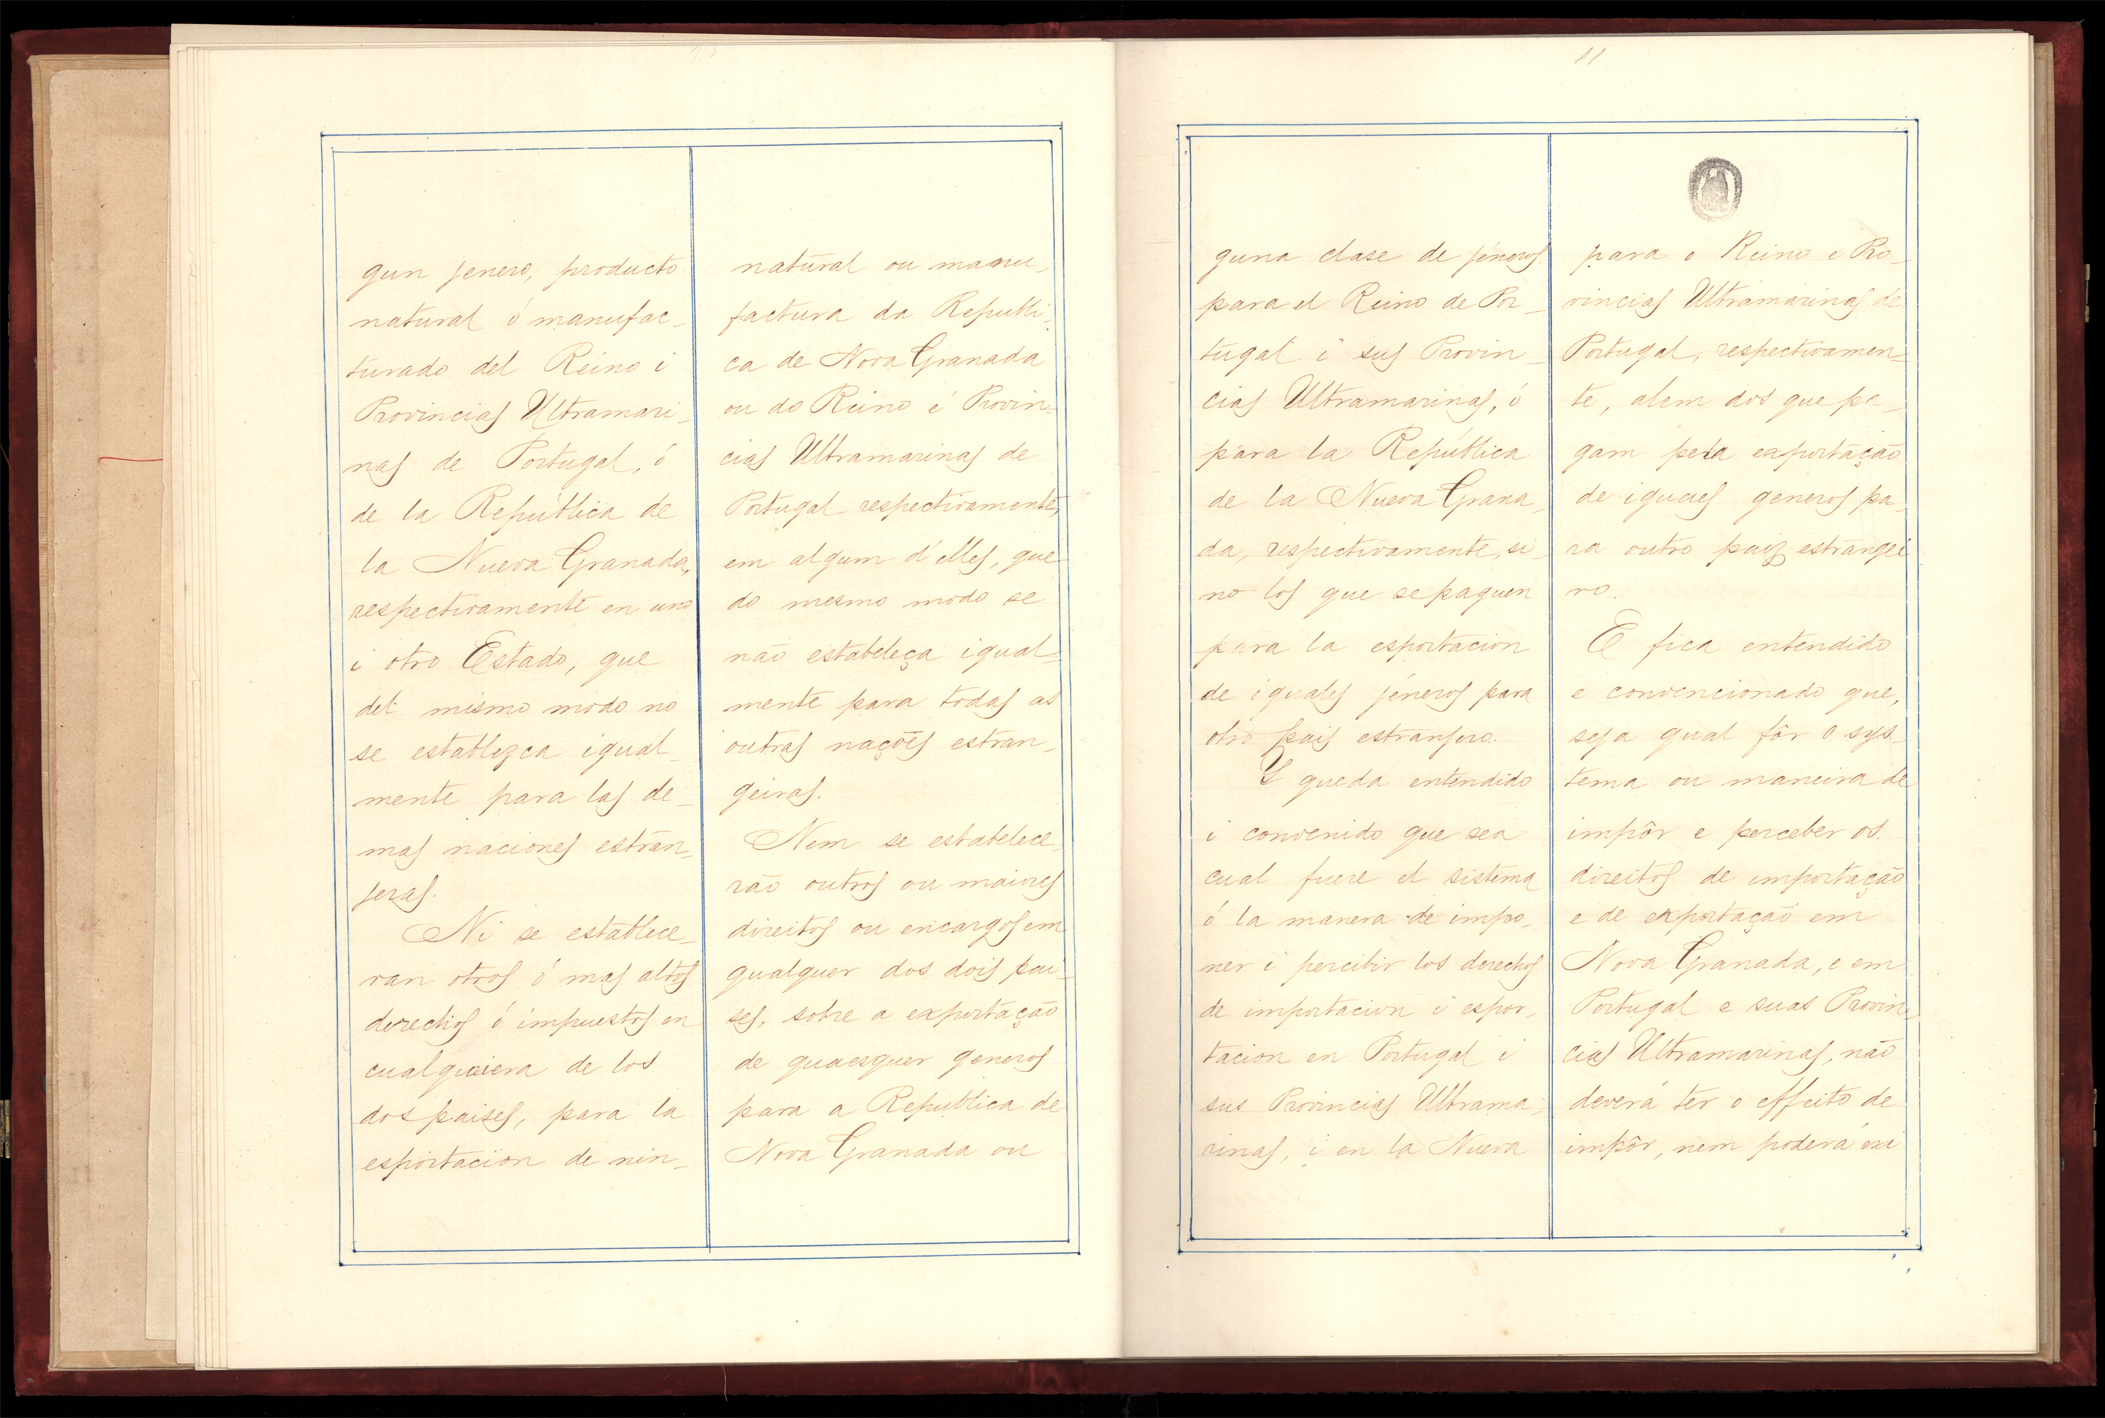 11
gun jenero, producto
natural ó manufac-
turado del Reino i
Provincias Ultramari-
nas de Portugal, ó
de la República de
la Nueva Granada,
respectivamente en uno
i otro Estado, que
del mismo modo no
se establezca igual-
mente para las de-
mas naciones estran-
jeras.
Ni se establece-
ran otros ó mas altos
derechos ó impuestos en
cualquiera de los
dos paises, para la
esportacion de nin-
natural ou manu-
factura da Republi-
ca de Nova Granada
ou do Reino é Provin-
cias Ultramarinas de
Portugal respectivamente,
em algum d'elles, que
do mesmo modo se
não estabeleça igual-
mente para todas as
outras nações estran-
geiras.
Nem se estabelece-
rão outros ou maiores
direitos ou encargos em
qualquer dos dois pai-
ses, sobre a exportação
de quaesquer generos
para a Republica de
Nova Granada ou
guna clase de jéneros
para el Reino de Por-
tugal i sus Provin-
cias Ultramarinas, ó
para la República
de la Nueva Grana-
da, respectivamente, si-
no los que se paguen
para la esportacion
de iguales jéneros para
otro pais estranjero.
Y queda entendido
i convenido que sea
cual fuere el sistema
ó la manera de impo-
ner i percibir los derechos
de importacion i espor-
tacion en Portugal i
sus Provincias Ultrama-
rinas, i en la Nueva
para o Reino e Pro-
vincias Ultramarinas de
Portugal, respectivamen-
te, alem dos que pa-
gam pela exportação
de iguaes generos pa-
ra outro paiz estrangei
ro.
E fica entendido
e convencionado que,
seja qual fôr o sys-
tema ou maneira de
impôr e perceber os
direitos de importação
e de exportação em
Nova Granada, e em
Portugal e suas Provin-
cias Ultramarinas, não
deverá ter o effeito de
impôr, nem poderá exi